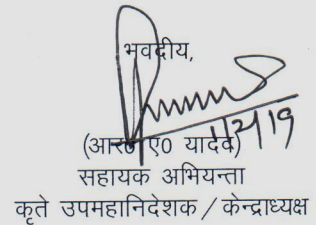 भवदीय,
1/2/19
(आर0 ए0 यादव)
सहायक अभियन्ता
कृते उपमहानिदेशक / केन्द्राध्यक्ष